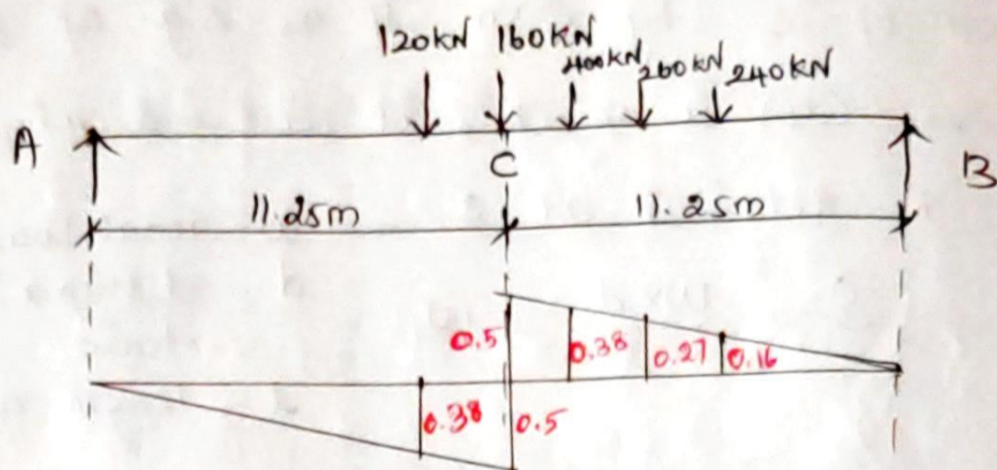 120kN 160kN 400kN 260kN 240kN
A
C
B
11.25m 11.25m
0.5 0.38 0.27 0.16
0.38 0.5